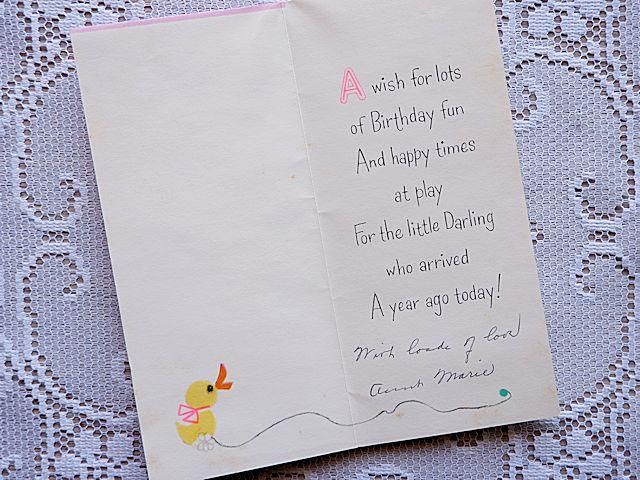 A wish for lots
of Birthday fun
And happy times
at play
For the little Darling
who arrived
A year ago today!
With loads of love
Aunt Marie